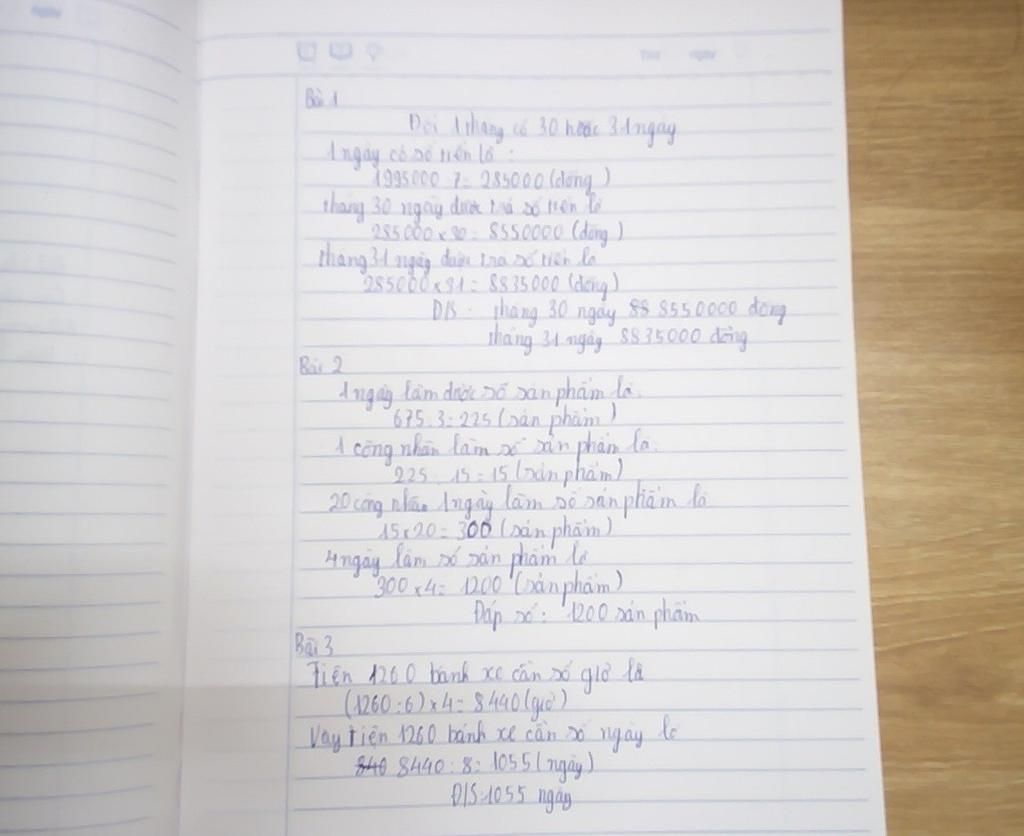 Bài 1
Đổi 1 tháng có 30 hoặc 31 ngày
1 ngày có số tiền là :
1995000 : 7 = 285000 (đồng)
tháng 30 ngày được trả số tiền là
285000 x 30 = 8550000 (đồng)
tháng 31 ngày được trả số tiền là
285000 x 31 = 8835000 (đồng)
Đ/S : tháng 30 ngày 88 8550000 đồng
tháng 31 ngày 8835000 đồng
Bài 2
1 ngày làm được số sản phẩm là:
675 : 3 = 225 (sản phẩm)
1 công nhân làm số sản phẩm là:
225 : 15 = 15 (sản phẩm)
20 công nhân 1 ngày làm số sản phẩm là
15 x 20 = 300 (sản phẩm)
4 ngày làm số sản phẩm là
300 x 4 = 1200 (sản phẩm)
Đáp số : 1200 sản phẩm
Bài 3
Tiện 1260 bánh xe cần số giờ là
(1260 : 6) x 4 = 8440 (giờ)
Vậy tiện 1260 bánh xe cần số ngày là
840 8440 : 8 = 1055 (ngày)
Đ/S: 1055 ngày